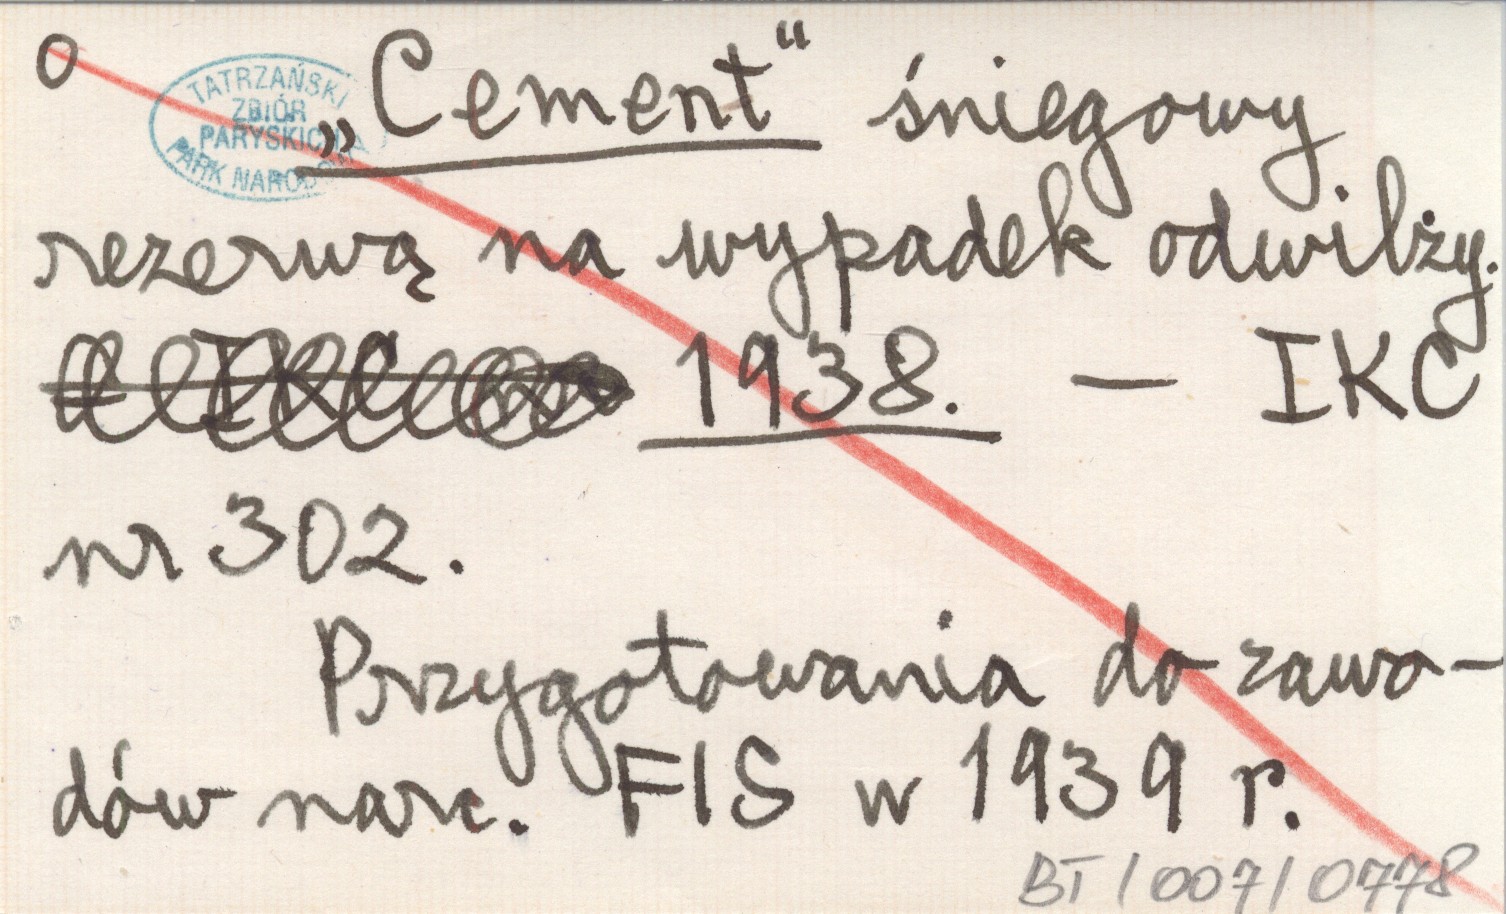 o
TATRZAŃSKI
ZBIÓR
PARYSKICH
PARK NARODOWY
„Cement“ śniegowy
rezerwą na wypadek odwilży.
1938. — IKC
nr 302.
Przygotowania do zawo-
dów narc. FIS w 1939 r.
BT/007/0778